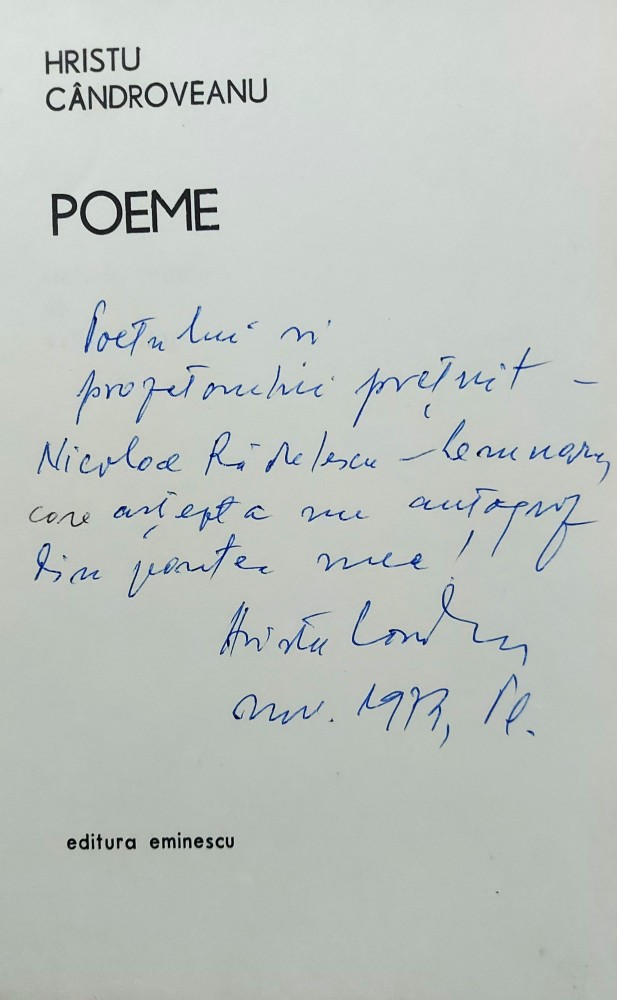 HRISTU
CÂNDROVEANU
POEME
Poetului și
prozatorului prețuit –
Nicolae Rădulescu – Lemnaru,
care aștepta un autograf
din partea mea!
Hristu Când
nov. 1973, Pl.
editura eminescu